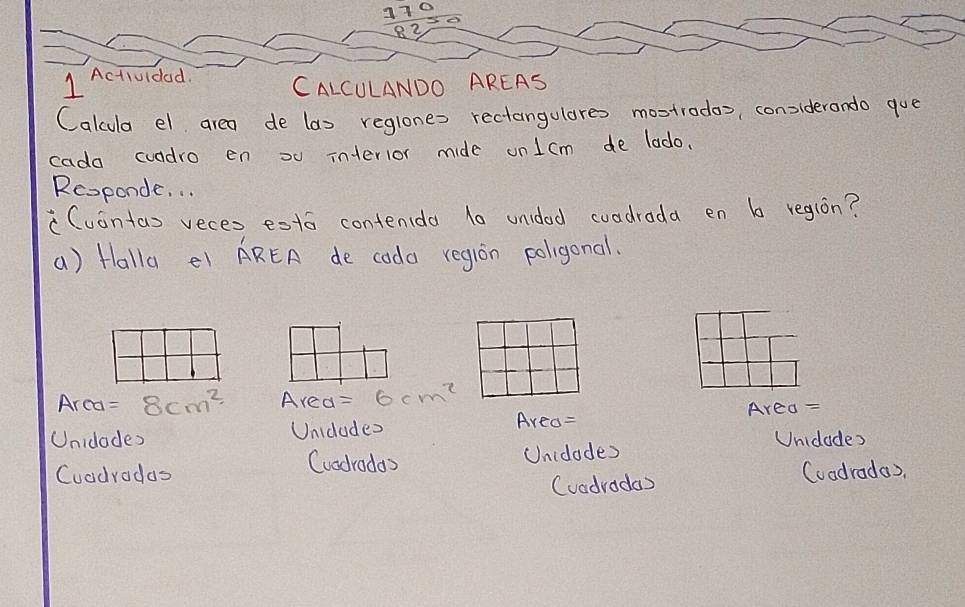 170
8250
1 Actividad.
CALCULANDO AREAS
Calcula el area de las regiones rectangulares mostradas, considerando que
cada cuadro en su interior mide un 1cm de lado.
Responde...
¿Cuántas veces está contenida la unidad cuadrada en la región?
a) Halla el ÁREA de cada región poligonal.
Area = 8cm² Area = 6cm² Area = Area =
Unidades Unidades Unidades Unidades
Cuadradas Cuadradas Cuadradas Cuadradas.